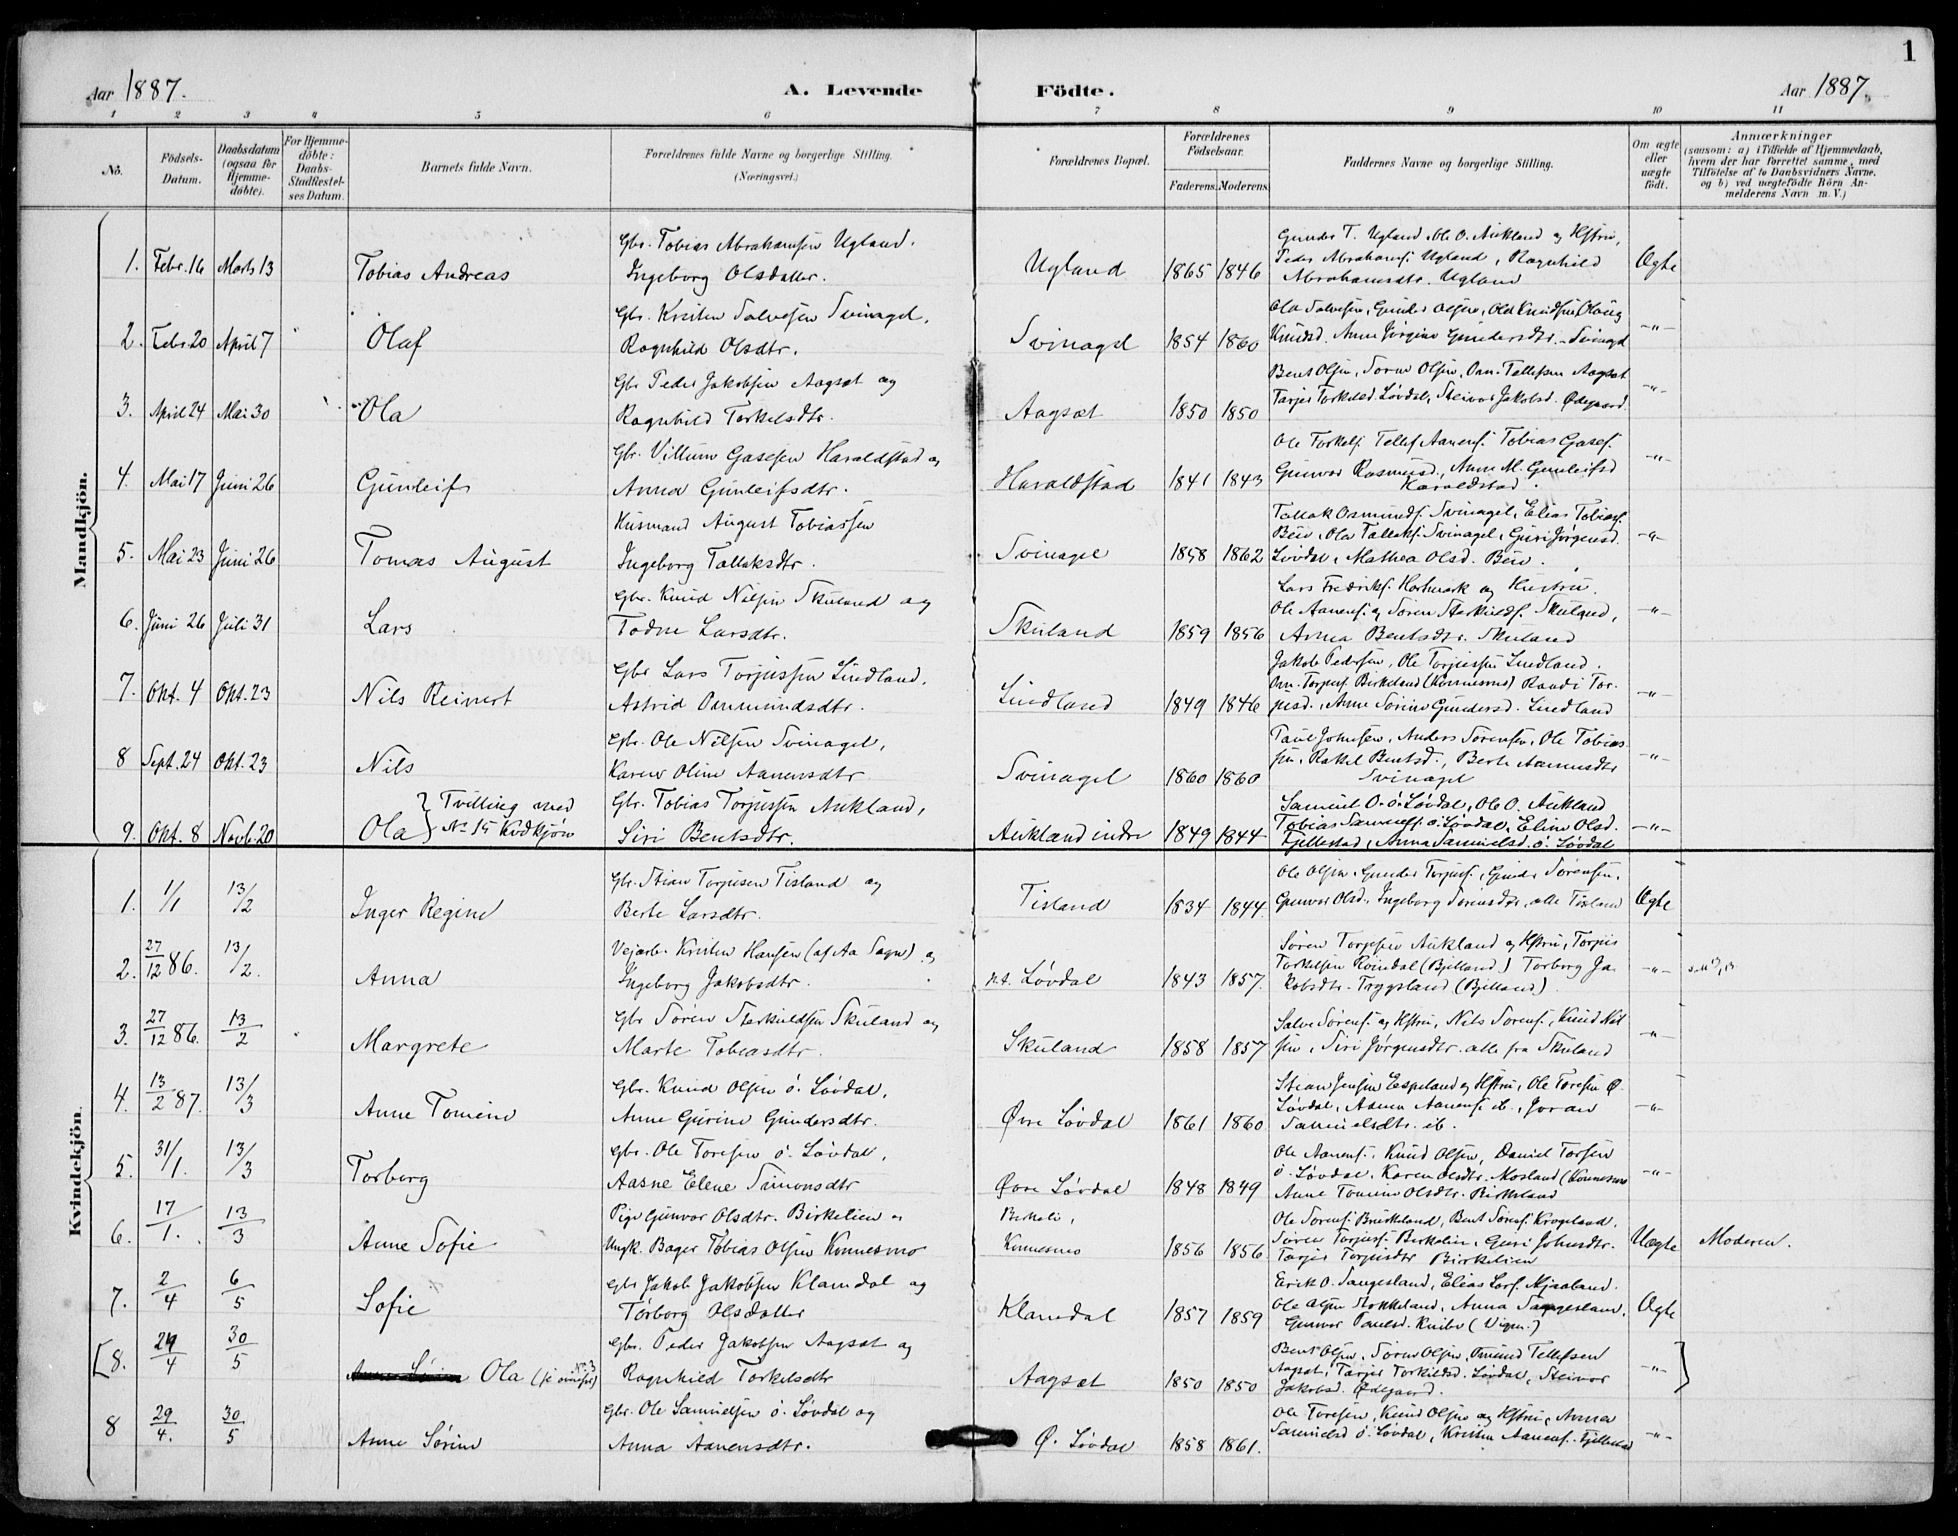 1
Aar 1887.
A. Levende Födte.
Aar 1887.
1 2 3 4 5 6 7 8 9 10 11
No.
Födsels-Datum.
Daabsdatum (ogsaa for Hjemme-döbte).
For Hjemme-döbte: Daabs-Stadfæstel-ses Datum.
Barnets fulde Navn.
Forældrenes fulde Navne og borgerlige Stilling. (Næringsvei.)
Forældrenes Bopæl.
Forældrenes Födselsaar.
Faderens. Moderens.
Faddernes Navne og borgerlige Stilling.
Om ægte eller uægte födt.
Anmærkninger
(saasom: a) i Tilfælde af Hjemmedaab, hvem der har forrettet samme, med Tilföielse af to Daabsvidners Navne, og b) ved uægtefödte Börn An-melderens Navn m. V.)
Mandkjön.
1. Febr. 16 Marts 13 Tobias Andreas
Gbr. Tobias Abrahamsen Ugland.
Ingeborg Olsdatter.
Ugland 1865 1846
Gunder T. Ugland, Ole O. Aukland og Hstru,
Peder Abrahamsf. Ugland, Ragnhild
Abrahamsdtr. Ugland
Ægte
2. Febr. 20 April 7 Olaf
Gbr. Kristen Salvesen Svinagel,
Ragnhild Olsdtr.
Svinagel 1854 1860
Ola Salvesen, Gunder Olsen, Ole Knudsen, Olaug
Knudsd. Anne Jørgine Gundersdtr. Svinagel
-"-
3. April 24 Mai 30 Ola
Gbr Peder Jakobsen Aagsæt og
Ragnhild Torkelsdtr.
Aagsæt 1850 1850
Bent Olsen, Søren Olsen, Om. Tellefsen Aagsæt
Tarjer Torkelsd. Løvdal, Steivor Jakobsd. Ødegaard.
-"-
4. Mai 17 Juni 26 Gunleif
Gbr. Villum Gasesen Haraldstad og
Anna Gunleifsdtr.
Haraldstad 1841 1843
Ole Torkels. Tellef Aanensf. Tobias Gasesf.
Gunvor Rasmusd., Anne M. Gunleifsd
Haraldstad.
-"-
5. Mai 23 Juni 26 Tomas August
Husmand August Tobiassen
Ingeborg Tallaksdtr.
Svinagel 1858 1862
Tallak Osmundsf. Svinagel, Elias Tobiasf.
Beie, Ola Tallaksf. Svinagel, Guri Jørgensd.
Løvdal, Mathea Olsd. Beie.
-"-
6. Juni 26 Juli 31 Lars
Gbr. Knud Nilsen Skuland og
Todne Larsdtr.
Skuland 1859 1856
Lars Fredriksf. Hortmark og Hustru.
Ole Aanensf. og Søren Sterkildsf. Skuland,
Anna Bentsdtr. Skuland
-"-
7. Okt. 4 Okt. 23 Nils Reinert
Gbr Lars Torjussen Lindland.
Astrid Oanmundsdtr.
Lindland 1849 1846
Jakob Pedersen, Ole Torjussen Lindland.
Om. Torjusf. Birkeland (Konnesmo) Randi Tor-
jusd., Anne Sørine Gundersd. Lindland
-"-
8 Sept. 24 Okt. 23 Nils
Gbr. Ole Nilsen Svinagel,
Karen Oline Aanensdtr
Svinagel 1860 1860
Paul Johnsen, Anders Sørensen, Ole Tobias-
sen, Rakel Bentsd., Berte Aanensdtr
Svinagel
-"-
9. Okt. 8 Novb. 20 Ola } Tvilling med
No 15 Kvdkjøn
Gbr. Tobias Torjussen Aukland,
Siri Bentsdtr.
Aukland indre 1849 1844
Samuel O. ö. Løvdal, Ole O. Aukland
Tobias Samuelsf. ö. Løvdal, Eline Olsd.
Fjellestad, Anna Samuelsd. ö. Løvdal
-"-
Kvindekjön.
1. 1/1 13/2 Inger Regine
Gbr. Stian Torjusen Tisland og
Berte Larsdtr.
Tisland 1834 1844
Ole Olsen, Gunder Torjusf., Gunder Sørensen,
Gunvor Olsd., Ingeborg Sørensdtr, alle Tisland
Ægte
2. 27/12 86. 13/2. Anna
Vejarb. Kristen Hansen (af Aa Sogn) og
Ingeborg Jakobsdtr.
p.t. Løvdal 1843 1857.
Søren Torjesen Aukland og Hstru, Torjus
Torkelsen Røindal (Bjelland) Torborg Ja-
kobsdtr. Trygsland (Bjelland).
-"-
3. 27/12 86. 13/2 Margrete
Gbr Søren Sterkildsen Skuland og
Marte Tobiasdtr.
Skuland 1858 1857
Salve Sørensf. og Hstru, Nils Sørensf., Knud Nil-
sen, Siri Jørgensdtr. alle fra Skuland
-"-
4. 13/2 87. 13/3 Anne Tomine
Gbr. Knud Olsen ö. Løvdal,
Anne Gurine Gundersdtr.
Øvre Løvdal 1861 1860
Stian Jensen Espeland og Hstru, Ole Toresen Ø.
Løvdal, Adne Aanensf. ib., Joran
Samuelsdtr. ib.
-"-
5. 31/1. 13/3 Torborg
Gbr. Ole Toresen ö. Løvdal,
Aasne Elene Simonsdtr
Øvre Løvdal 1848 1849
Ole Aanensf. Knud Olsen, Daniel Torsen
ö. Løvdal, Karen Olsdtr. Mosland (Konnesmo
Anne Tomine Olsdtr. Birkeland
-"-
6. 17/1. 13/3 Anne Sofie
Pige Gunvor Olsdtr. Birkelien og
Ungk. Bager Tobias Olsen Konnesmo
Birkeli,
Konnesmo 1856 1856
Ole Sørensf. Birkeland, Bent Sørensf. Krogeland,
Søren Torjusf. Birkelien, Guri Johnsdtr.
Tarjer Torjusdtr Birkelien
Uægte Moderen.
7. 2/4 6/5 Sofie
Gbr Jakob Jakobsen Klamdal og
Torborg Olsdatter
Klamdal 1857 1859
Erik O. Saugesland, Elias Larsf. Mjaaland.
Ole Olsen Stokkeland, Anna Saugesland,
Gunvor Paulsd. Knibe (Vigm.)
Ægte
[8. 24/4 30/5 Ola (se ovenfor) No. 3
Gbr. Peder Jakobsen Aagsæt og
Ragnhild Torkelsdtr
Aagsæt 1850 1850
Bent Olsen, Søren Olsen, Omund Tellefsen
Aagsæt, Tarjer Torkildsd. Løvdal, Steivor
Jakobsd. Ødegaard.
-"- ]
8 29/4. 30/5 Anne Sørine
Gbr. Ole Samuelsen ö. Løvdal og
Anna Aanensdtr.
Ø. Løvdal 1858 1861.
Ole Toresen, Knud Olsen og Hstru, Anna
Samuelsd ö. Løvdal, Kristen Aanensf. Fjellestad
-"-